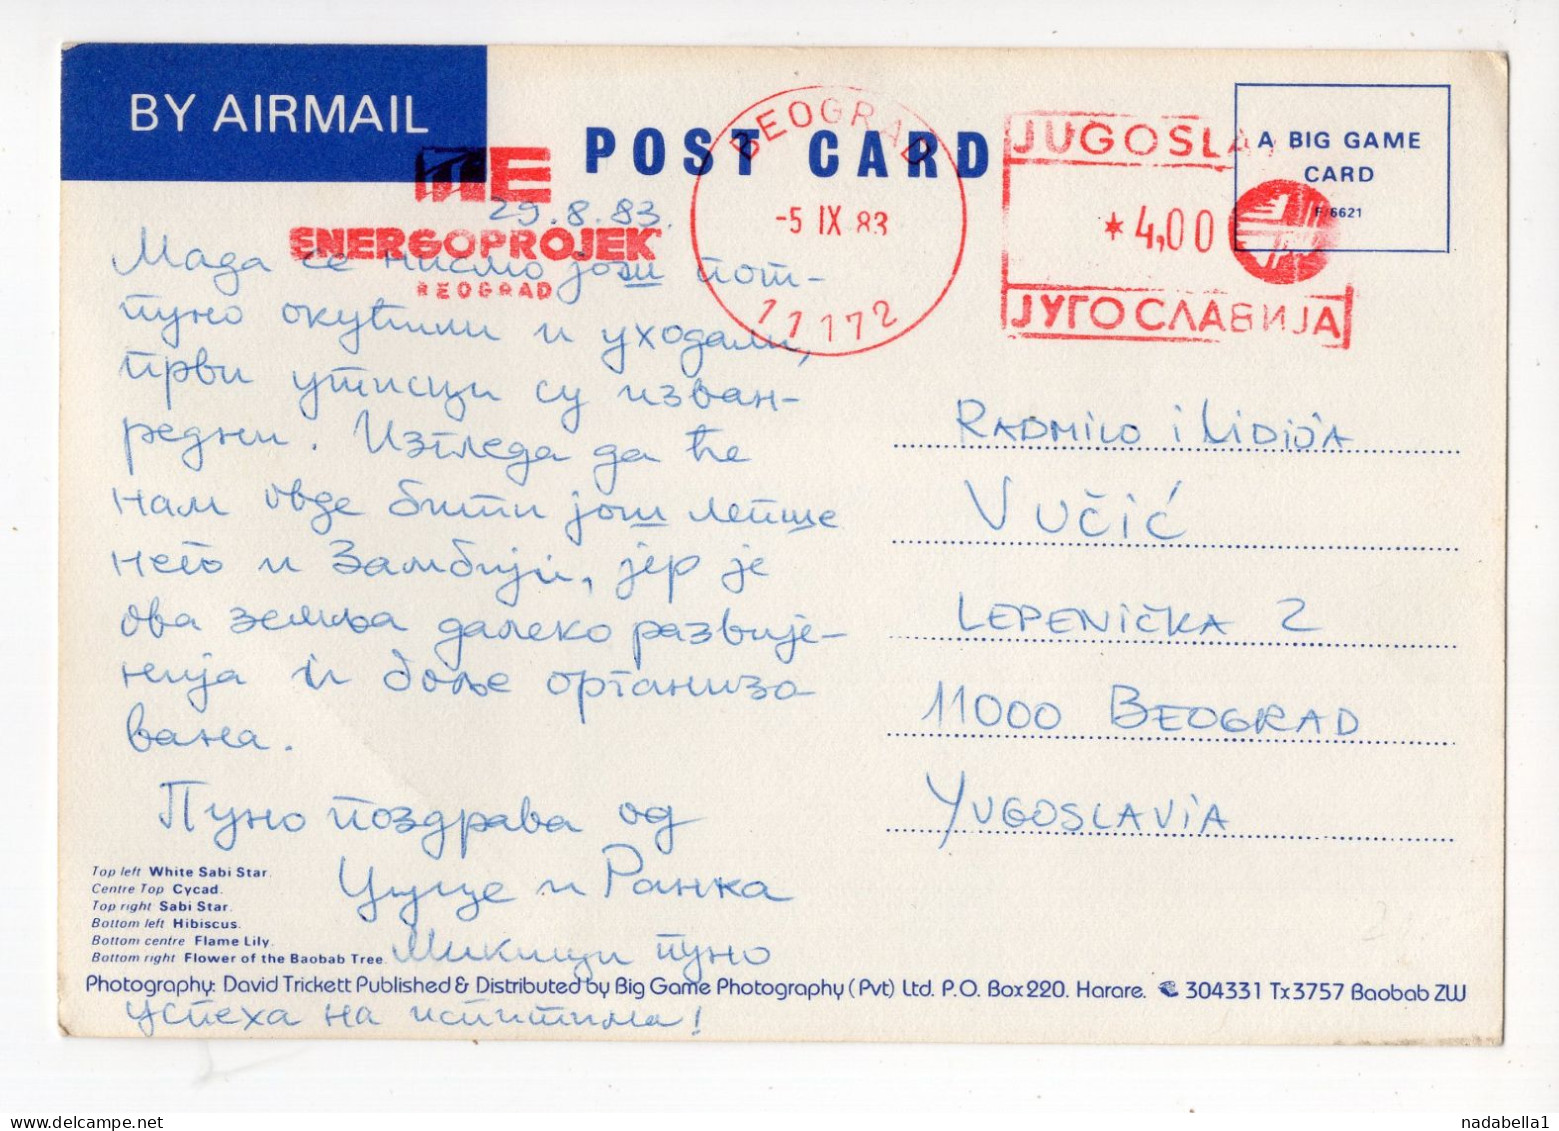 BY AIRMAIL
POST CARD
ENERGOPROJEK
BEOGRAD
BEOGRAD
-5 IX 83
11172
JUGOSLA
*4,00
ЈУГОСЛАВИЈА
A BIG GAME
CARD
F/6621
29.8.83.
Мада се нисмо још пот-
пуно окућили и уходали,
први утисци су изван-
редни. Изгледа да ће
нам овде бити још лепше
него и Замбији, јер је
ова земља далеко развије-
нија и боље организо
вана.
Пуно поздрава од
и Ранка
Микици пуно
успеха на испитима!
RADMILO i LIDIJA
VUČIĆ
LEPENIČKA 2
11000 BEOGRAD
YUGOSLAVIA
Top left White Sabi Star.
Centre Top Cycad.
Top right Sabi Star.
Bottom left Hibiscus.
Bottom centre Flame Lily.
Bottom right Flower of the Baobab Tree.
Photography: David Trickett Published & Distributed by Big Game Photography (Pvt) Ltd. P.O. Box 220. Harare. 304331 Tx3757 Baobab ZW
nadabella1